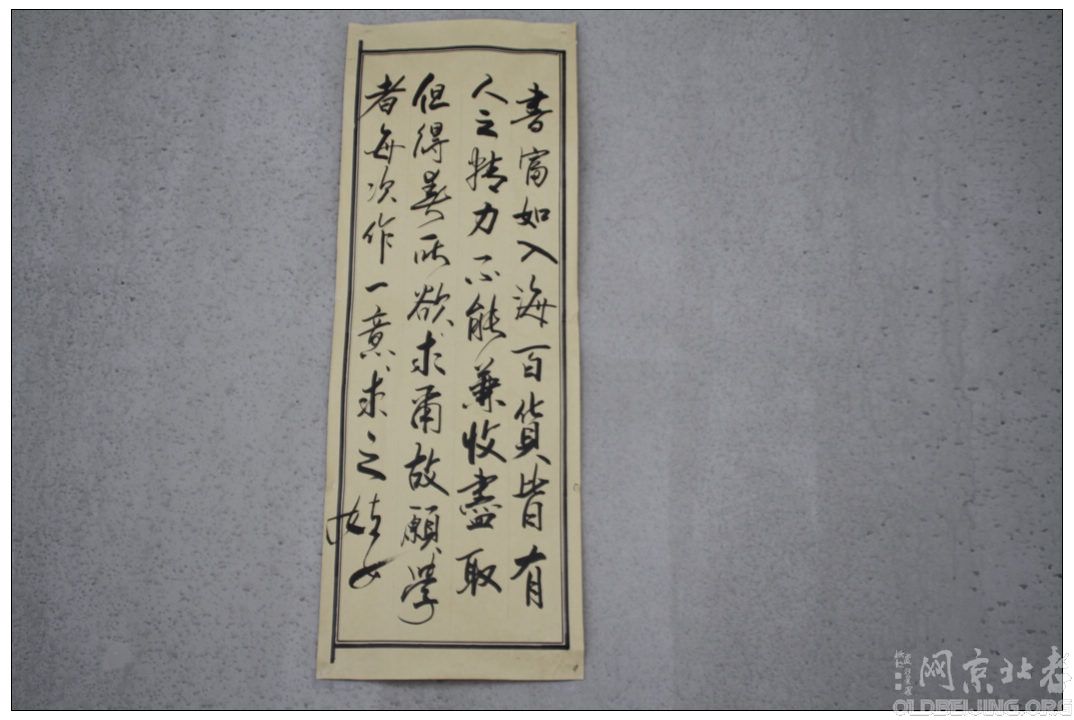 書富如入海百貨皆有
人之精力不能兼收盡取
但得其所欲求爾故願學
者每次作一意求之
老北京网
OLDBEIJING.ORG